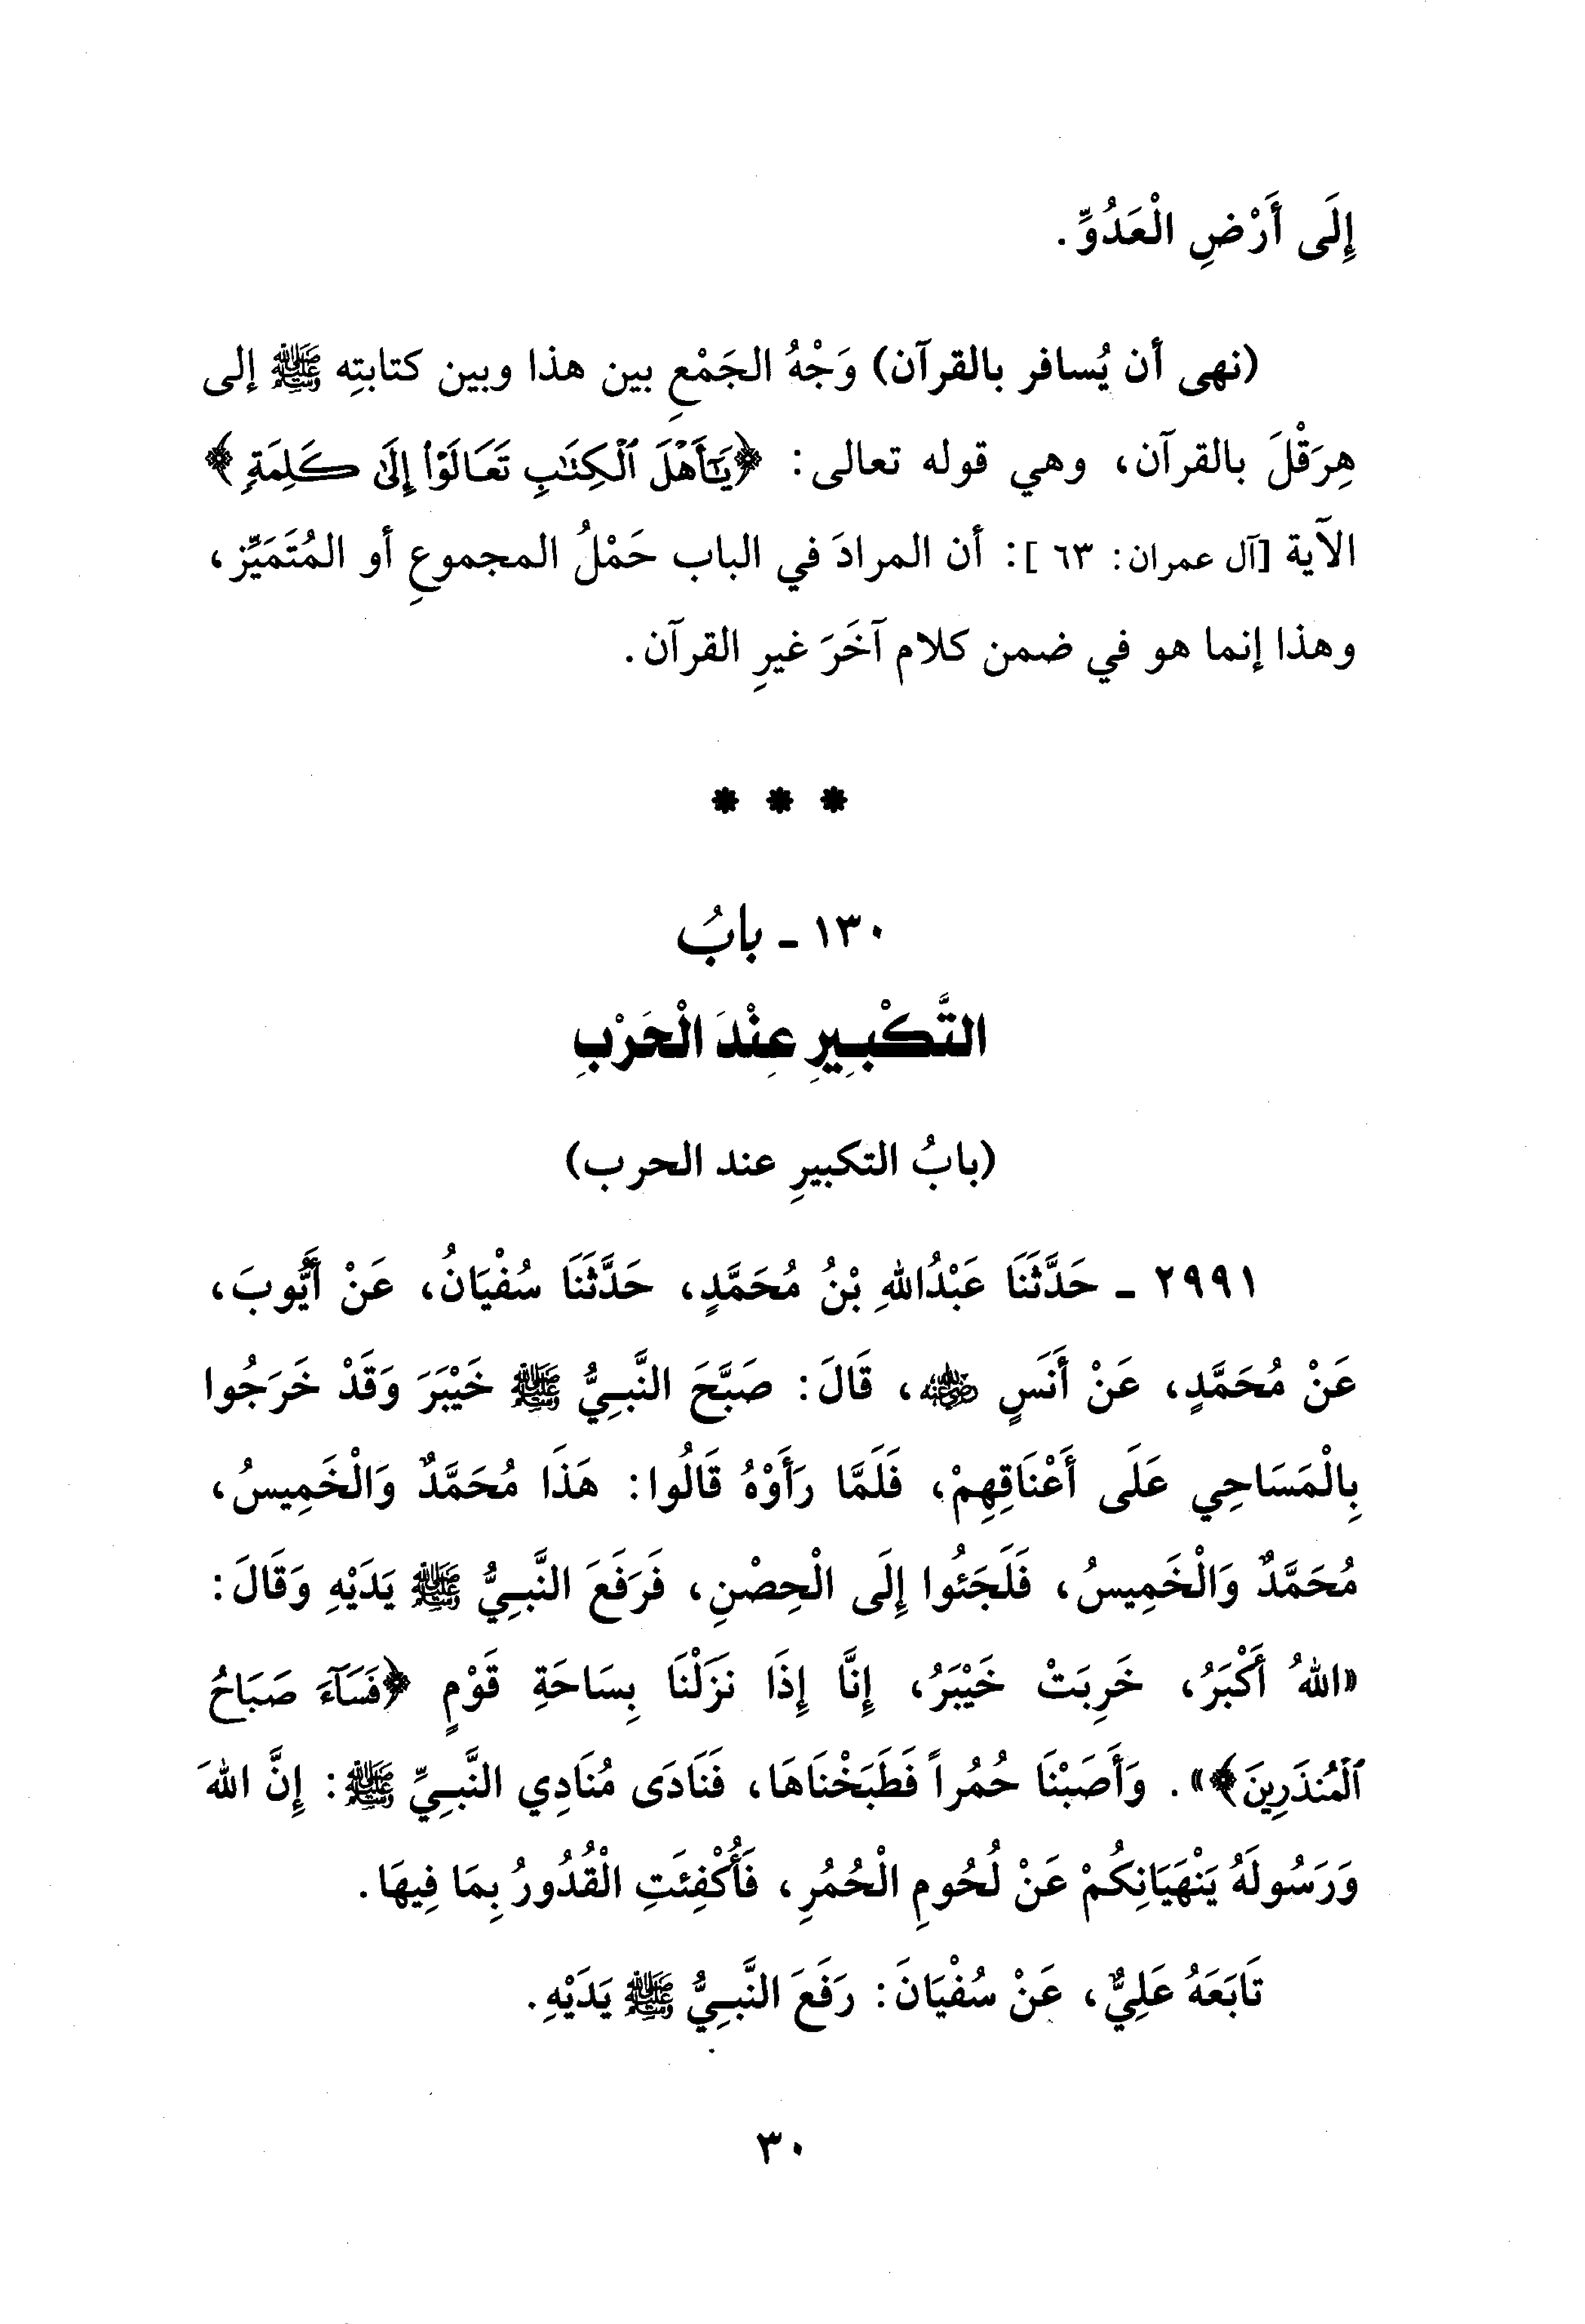 إِلَى أَرْضِ الْعَدُوِّ.
(نهى أن يُسافر بالقرآن) وَجْهُ الجَمْعِ بين هذا وبين كتابتِه ﷺ إلى
هِرَقْلَ بالقرآن، وهي قوله تعالى: ﴿يَٰٓأَهْلَ ٱلْكِتَٰبِ تَعَالَوْا۟ إِلَىٰ كَلِمَةٍ﴾
الآية [آل عمران: ٦٣]: أن المرادَ في الباب حَمْلُ المجموعِ أو المُتَمَيِّز،
وهذا إنما هو في ضمن كلام آخَرَ غيرِ القرآن.
* * *
١٣٠ - بابُ
التَّكْبِيرِ عِنْدَ الْحَرْبِ
(بابُ التكبيرِ عند الحرب)
٢٩٩١ - حَدَّثَنَا عَبْدُاللهِ بْنُ مُحَمَّدٍ، حَدَّثَنَا سُفْيَانُ، عَنْ أَيُّوبَ،
عَنْ مُحَمَّدٍ، عَنْ أَنَسٍ رضي الله عنه، قَالَ: صَبَّحَ النَّبِيُّ ﷺ خَيْبَرَ وَقَدْ خَرَجُوا
بِالْمَسَاحِي عَلَى أَعْنَاقِهِمْ، فَلَمَّا رَأَوْهُ قَالُوا: هَذَا مُحَمَّدٌ وَالْخَمِيسُ،
مُحَمَّدٌ وَالْخَمِيسُ، فَلَجَئُوا إِلَى الْحِصْنِ، فَرَفَعَ النَّبِيُّ ﷺ يَدَيْهِ وَقَالَ:
«اللهُ أَكْبَرُ، خَرِبَتْ خَيْبَرُ، إِنَّا إِذَا نَزَلْنَا بِسَاحَةِ قَوْمٍ ﴿فَسَآءَ صَبَاحُ
ٱلْمُنذَرِينَ﴾». وَأَصَبْنَا حُمُراً فَطَبَخْنَاهَا، فَنَادَى مُنَادِي النَّبِيِّ ﷺ: إِنَّ اللهَ
وَرَسُولَهُ يَنْهَيَانِكُمْ عَنْ لُحُومِ الْحُمُرِ، فَأُكْفِئَتِ الْقُدُورُ بِمَا فِيهَا.
تَابَعَهُ عَلِيٌّ، عَنْ سُفْيَانَ: رَفَعَ النَّبِيُّ ﷺ يَدَيْهِ.
٣٠